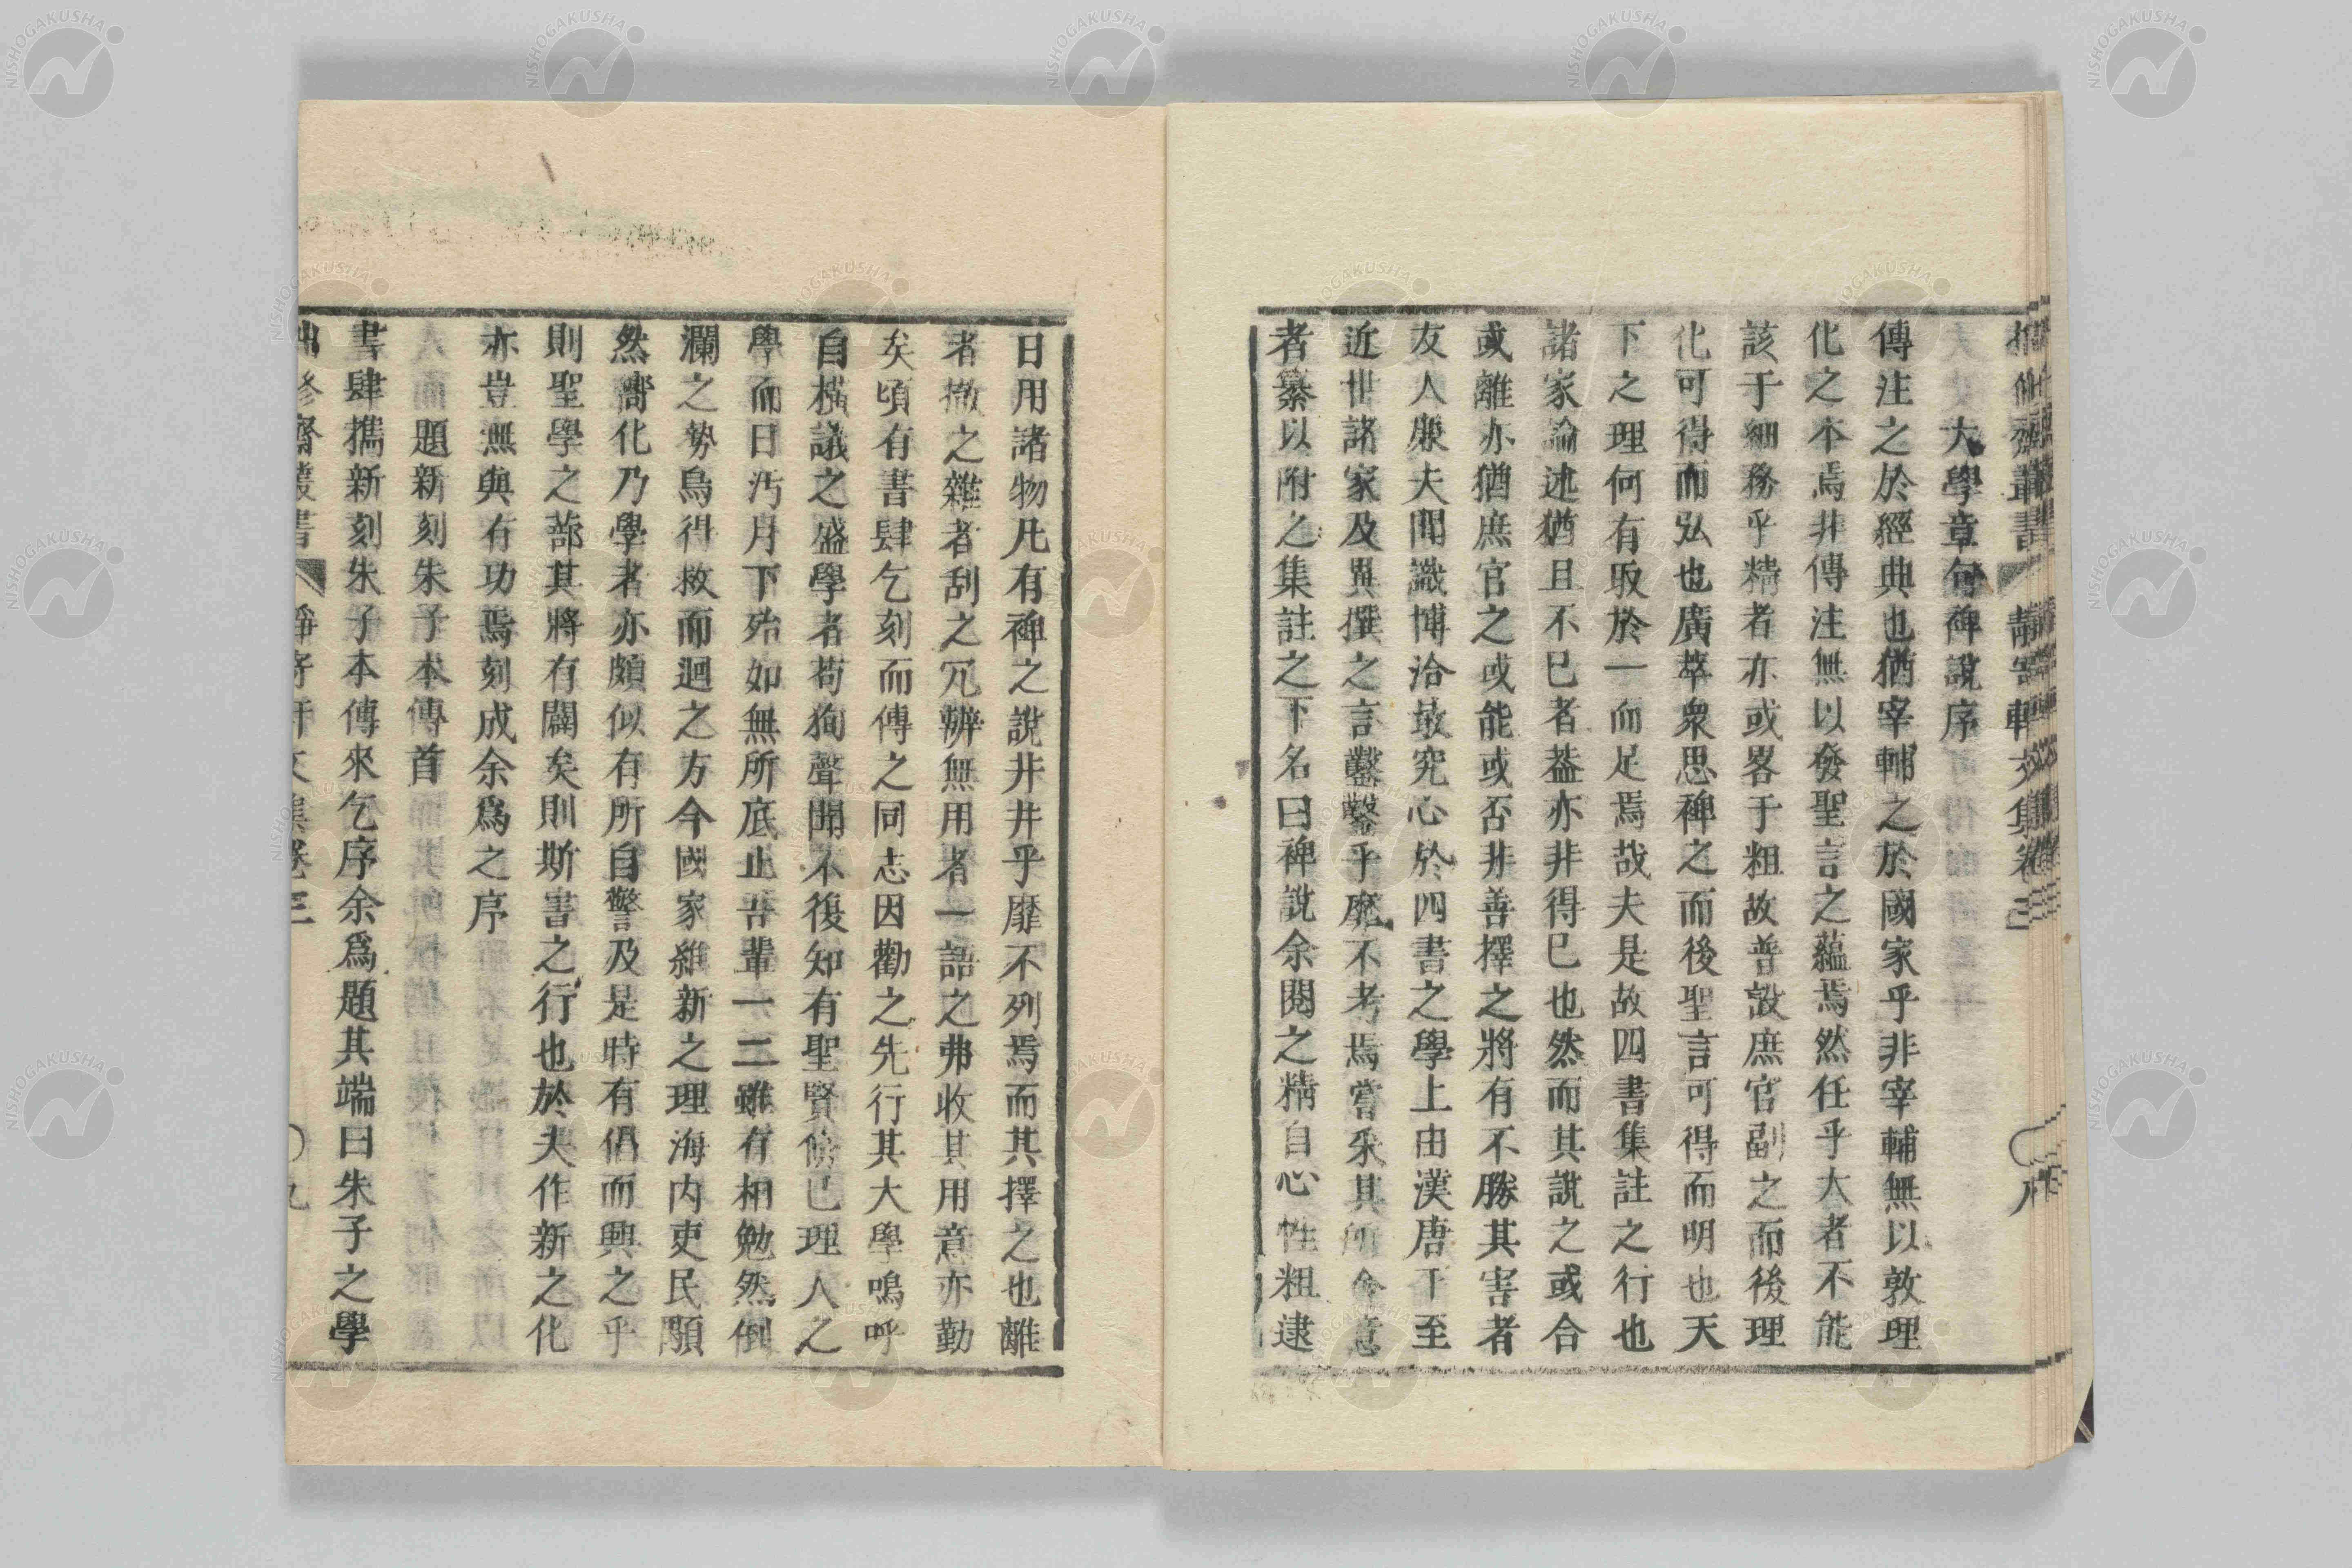 大學章句裨說序
傳注之於經典也猶宰輔之於國家乎非宰輔無以敦理
化之本焉非傳注無以發聖言之蘊焉然任乎大者不能
該于細務乎精者亦或畧于粗故普設庶官副之而後理
化可得而弘也廣萃衆思裨之而後聖言可得而明也天
下之理何有取於一而足焉哉夫是故四書集註之行也
諸家論述猶且不已者葢亦非得已也然而其說之或合
或離亦猶庶官之或能或否非善擇之將有不勝其害者
友人康夫聞識博洽最究心於四書之學上由漢唐下至
近世諸家及異撰之言鑿鑿乎靡不考焉嘗采其所會意
者纂以附之集註之下名曰裨說余閱之精自心性粗逮
日用諸物凡有裨之說井井乎靡不列焉而其擇之也離
者撤之雜者刮之冗辨無用者一語之弗收其用意亦勤
矣頃有書肆乞刻而傳之同志因勸之先行其大學嗚呼
自橫議之盛學者苟狥聲聞不復知有聖賢脩己理人之
學而日沔月下殆如無所底止吾輩一二雖有相勉然倒
瀾之勢烏得救而迴之方今國家維新之理海内吏民顒
然嚮化乃學者亦頗似有所自警及是時有倡而興之乎
則聖學之蔀其將有闢矣則斯書之行也於夫作新之化
亦豈無與有功焉刻成余爲之序
題新刻朱子本傳首
書肆携新刻朱子本傳來乞序余爲題其端曰朱子之學
修齋叢書
文集卷三
九
NISHOGAKUSHA